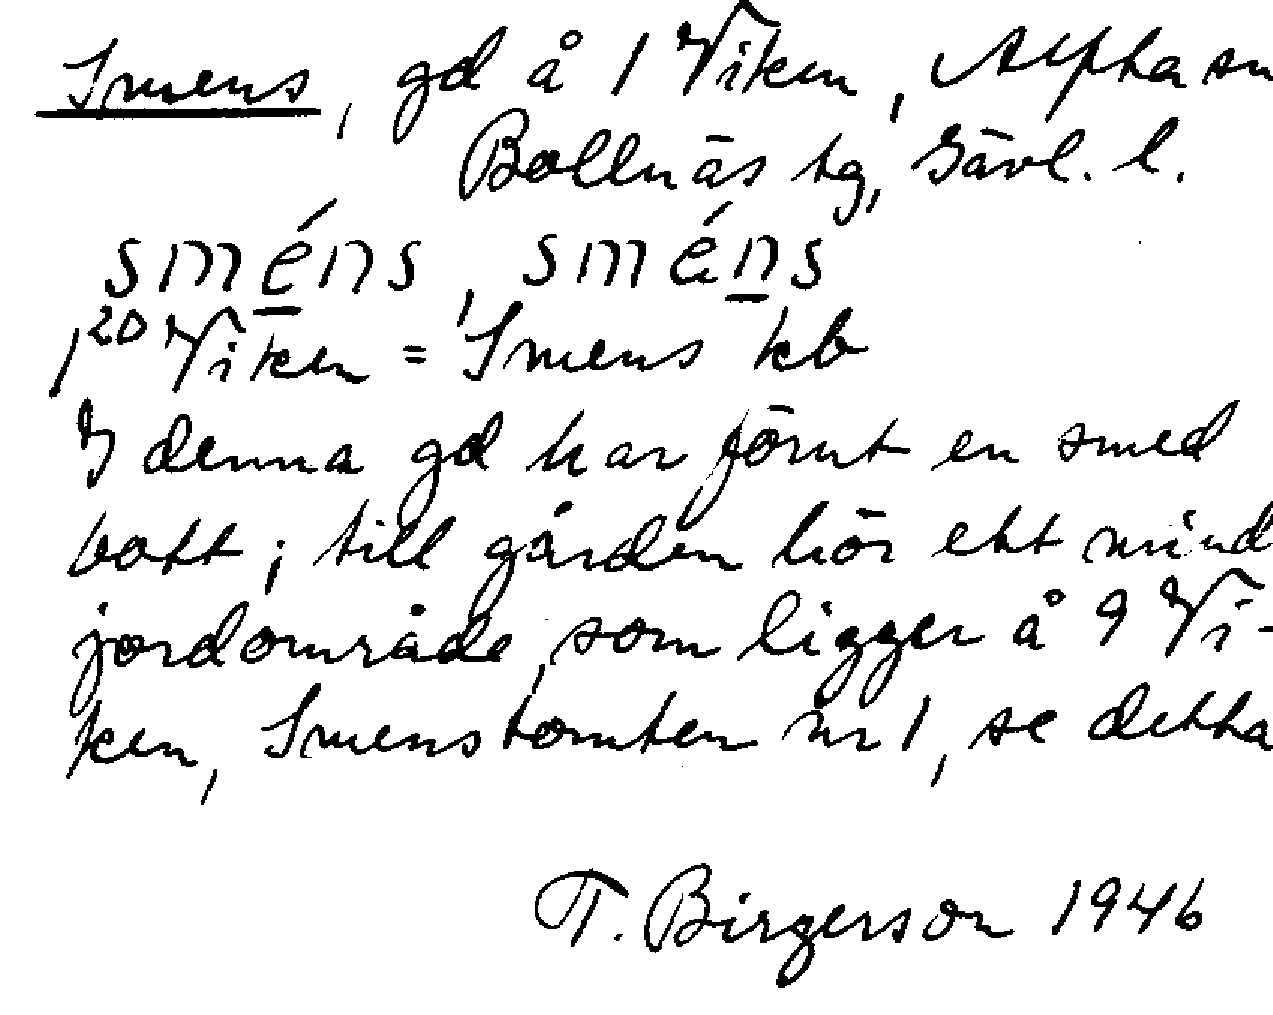 Smens, gd å 1 Viken, Alfta sn
Bollnäs tg, Gävl. l.
sméns, sméns
1²⁰ Viken = Smens kb
I denna gd har förut en smed
bott; till gården hör ett mind
jordområde, som ligger å 9 Vi-
ken, Smenstomten nr 1, se detta
T. Birgerson 1946